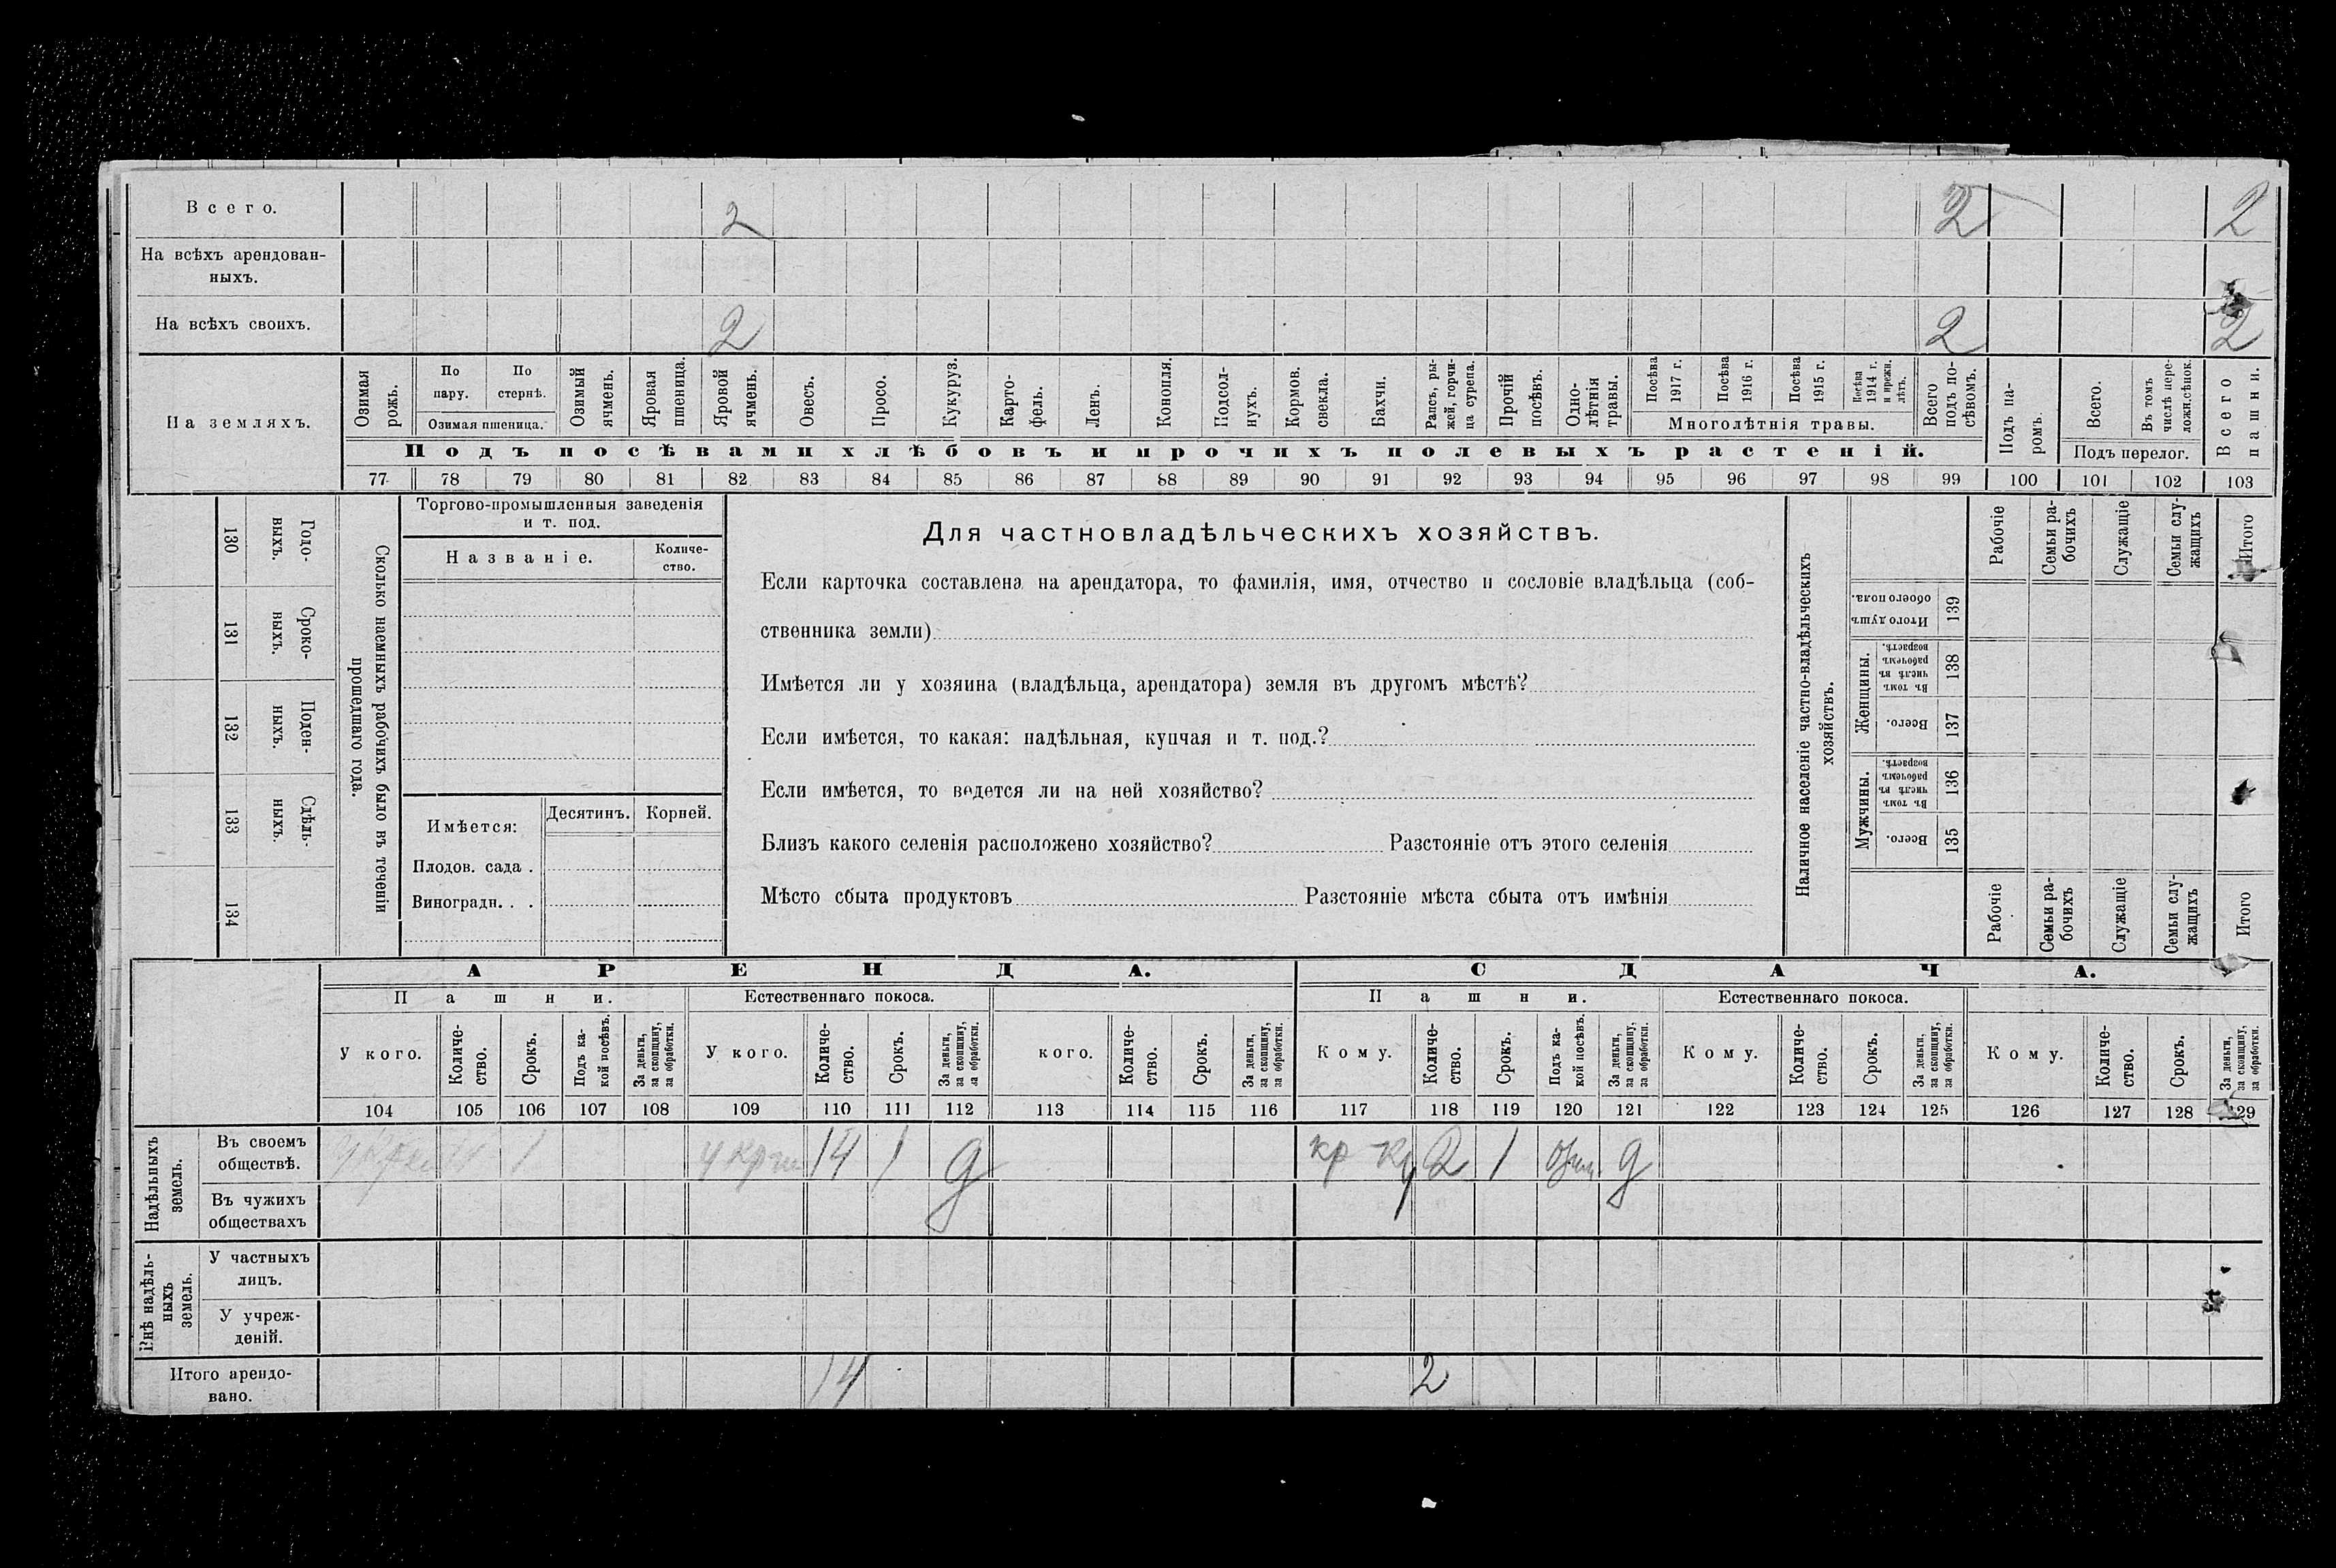 Всего. 2 2 2
На всѣхъ арендован-
ныхъ.
На всѣхъ своихъ. 2 2 2
На земляхъ.
Озимая рожь.
По пару.
По стернѣ.
Озимая пшеница.
Озимый ячмень.
Яровая пшеница.
Яровой ячмень.
Овесъ.
Просо.
Кукуруз.
Карто-
фель.
Ленъ.
Конопля.
Подсол-
нухъ.
Кормов. свекла.
Бахчи.
Рапсъ, ры-
жей, горчи-
ца сурепа.
Прочій посѣвъ.
Одно-
лѣтнія травы.
Посѣва 1917 г.
Посѣва 1916 г.
Посѣва 1915 г.
Посѣва 1914 г. и прежн. лѣтъ.
Многолѣтнія травы.
Всего подъ по-
сѣвомъ.
Подъ па-
ромъ.
Всего.
Въ томъ числѣ пере-
ложн. сѣнок.
Подъ перелог.
Всего пашни.
Подъ посѣвами хлѣбовъ и прочихъ полевыхъ растеній.
77 78 79 80 81 82 83 84 85 86 87 88 89 90 91 92 93 94 95 96 97 98 99 100 101 102 103
130 Годо-
выхъ.
131 Сроко-
ныхъ.
132 Поден-
ныхъ.
133 Сдѣль-
ныхъ.
134
Сколько наемныхъ рабочихъ было въ теченіи
прошедшаго года.
Торгово-промышленныя заведенія
и т. под.
Названіе.
Количе-
ство.
Имѣется:
Десятинъ.
Корней.
Плодов. сада .
Виноградн. . .
Для частновладѣльческихъ хозяйствъ.
Если карточка составлена на арендатора, то фамилія, имя, отчество и сословіе владѣльца (соб-
ственника земли)
Имѣется ли у хозяина (владѣльца, арендатора) земля въ другомъ мѣстѣ?
Если имѣется, то какая: надѣльная, купчая и т. под.?
Если имѣется, то ведется ли на ней хозяйство?
Близъ какого селенія расположено хозяйство? Разстояніе отъ этого селенія
Мѣсто сбыта продуктовъ Разстояніе мѣста сбыта отъ имѣнія
Наличное населеніе частно-владѣльческихъ
хозяйствъ.
Рабочіе
Семьи ра-
бочихъ
Служащіе
Семьи слу-
жащихъ
Итого
Итого душъ обоего пола. 139
Женщины.
Въ томъ числѣ въ рабочемъ возрастѣ. 138
Всего. 137
Мужчины.
Въ томъ числѣ въ рабочемъ возрастѣ. 136
Всего. 135
Рабочіе
Семьи ра-
бочихъ
Служащіе
Семьи слу-
жащихъ
Итого
АРЕНДА. СДАЧА.
Пашни. Естественнаго покоса. Пашни. Естественнаго покоса.
У кого.
Количе-
ство.
Срокъ.
Подъ ка-
кой посѣвъ.
За деньги, за скопщину, за обработки.
У кого.
Количе-
ство.
Срокъ.
За деньги, за скопщину, за обработки.
кого.
Количе-
ство.
Срокъ.
За деньги, за скопщину, за обработки.
Кому.
Количе-
ство.
Срокъ.
Подъ ка-
кой посѣвъ.
За деньги, за скопщину, за обработки.
Кому.
Количе-
ство.
Срокъ.
За деньги, за скопщину, за обработки.
Кому.
Количе-
ство.
Срокъ.
За деньги, за скопщину, за обработки.
104 105 106 107 108 109 110 111 112 113 114 115 116 117 118 119 120 121 122 123 124 125 126 127 128 129
Надѣльныхъ
земель.
Въ своемъ
обществѣ. 1 14 1 д кр 2 1 д
Въ чужихъ
обществахъ
Внѣ надѣль-
ныхъ
земель.
У частныхъ
лицъ.
У учреж-
деній.
Итого арендо-
вано. 14 2